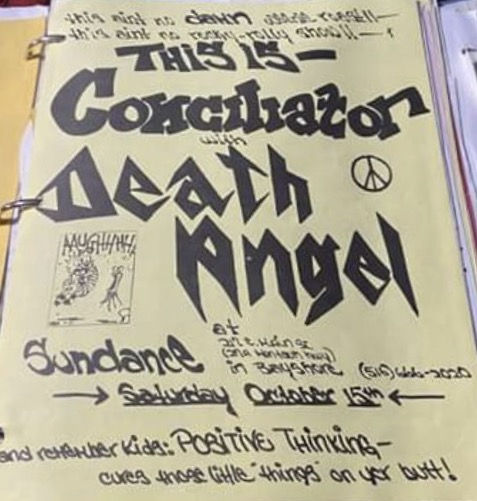 this aint no dawn
this aint no rocky-rolly show!!
THIS IS—
Conciliator
with
Death
Angel
AAUGHHHH
at
Sundance
in Bayshore (516) 666-2020
→ Saturday October 15th ←
and remember kids: POSITIVE THINKING—
cures those little "things" on yer butt!